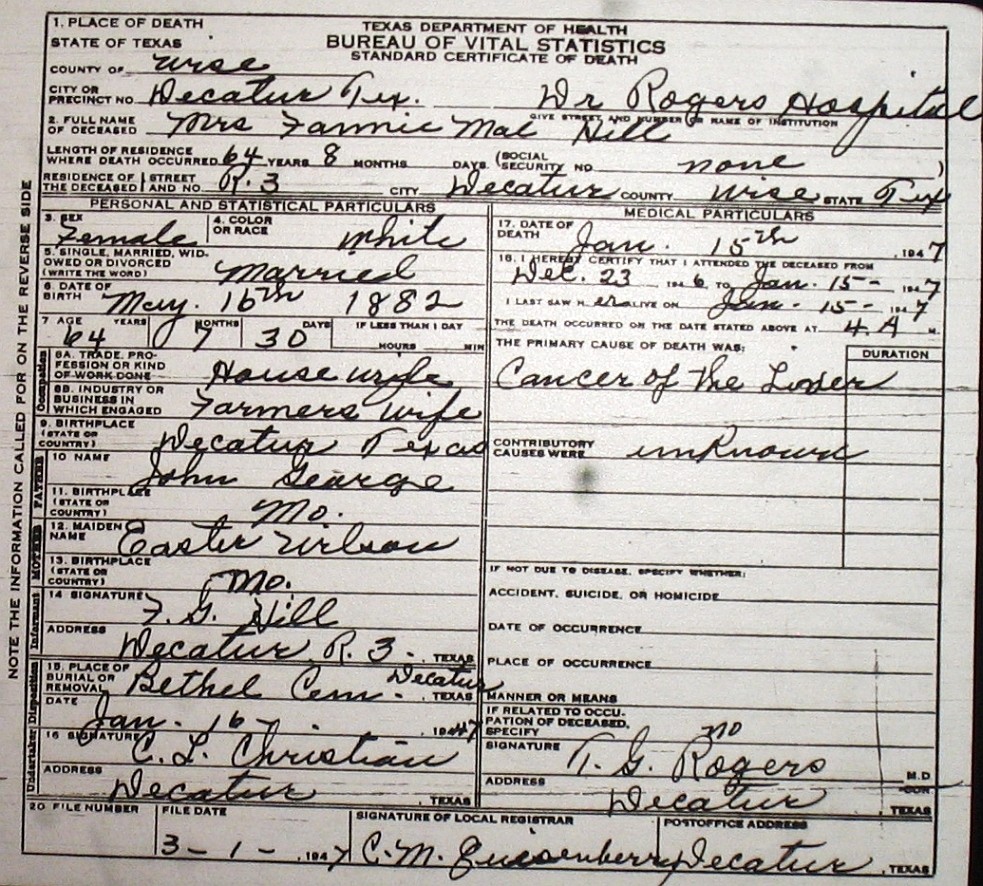 1. PLACE OF DEATH
TEXAS DEPARTMENT OF HEALTH
STATE OF TEXAS
BUREAU OF VITAL STATISTICS
STANDARD CERTIFICATE OF DEATH
COUNTY OF Wise
CITY OR PRECINCT NO. Decatur Tex. Dr Rogers Hospital
GIVE STREET AND NUMBER OR NAME OF INSTITUTION
2. FULL NAME OF DECEASED Mrs Fannie Mae Hill
LENGTH OF RESIDENCE WHERE DEATH OCCURRED 64 YEARS 8 MONTHS DAYS (SOCIAL SECURITY NO. none )
RESIDENCE OF THE DECEASED STREET AND NO. R.3 CITY Decatur COUNTY Wise STATE Tex
PERSONAL AND STATISTICAL PARTICULARS
3. SEX Female 4. COLOR OR RACE White
5. SINGLE, MARRIED, WIDOWED OR DIVORCED (WRITE THE WORD) Married
6. DATE OF BIRTH May. 16th 1882
7 AGE YEARS MONTHS DAYS IF LESS THAN 1 DAY
64 7 30 HOURS MIN
Occupation
8A. TRADE, PROFESSION OR KIND OF WORK DONE House wife
8B. INDUSTRY OR BUSINESS IN WHICH ENGAGED Farmers Wife
9. BIRTHPLACE (STATE OR COUNTRY) Decatur Texas
FATHER
10 NAME John George
11. BIRTHPLACE (STATE OR COUNTRY) Mo.
MOTHER
12. MAIDEN NAME Easter Wilson
13. BIRTHPLACE (STATE OR COUNTRY) Mo.
Informant
14 SIGNATURE F. G. Hill
ADDRESS Decatur R. 3 - , TEXAS
Undertaker Disposition
15. PLACE OF BURIAL OR REMOVAL Bethel Cem - Decatur , TEXAS
DATE Jan. 16 - , 1947
16 SIGNATURE C. L. Christian
ADDRESS Decatur , TEXAS
MEDICAL PARTICULARS
17. DATE OF DEATH Jan. 15th , 1947
18. I HEREBY CERTIFY THAT I ATTENDED THE DECEASED FROM
Dec. 23 1946 TO Jan. 15- 1947
I LAST SAW H er ALIVE ON Jan - 15- 1947
THE DEATH OCCURRED ON THE DATE STATED ABOVE AT 4. A M.
THE PRIMARY CAUSE OF DEATH WAS: DURATION
Cancer of the Liver
CONTRIBUTORY CAUSES WERE unknown
IF NOT DUE TO DISEASE, SPECIFY WHETHER:
ACCIDENT, SUICIDE, OR HOMICIDE
DATE OF OCCURRENCE
PLACE OF OCCURRENCE
MANNER OR MEANS
IF RELATED TO OCCUPATION OF DECEASED, SPECIFY no
SIGNATURE T. G. Rogers M.D
ADDRESS Decatur , TEXAS
20. FILE NUMBER FILE DATE SIGNATURE OF LOCAL REGISTRAR POSTOFFICE ADDRESS
3 - 1 - , 1947 C. M. Quisenberry Decatur , TEXAS
NOTE THE INFORMATION CALLED FOR ON THE REVERSE SIDE